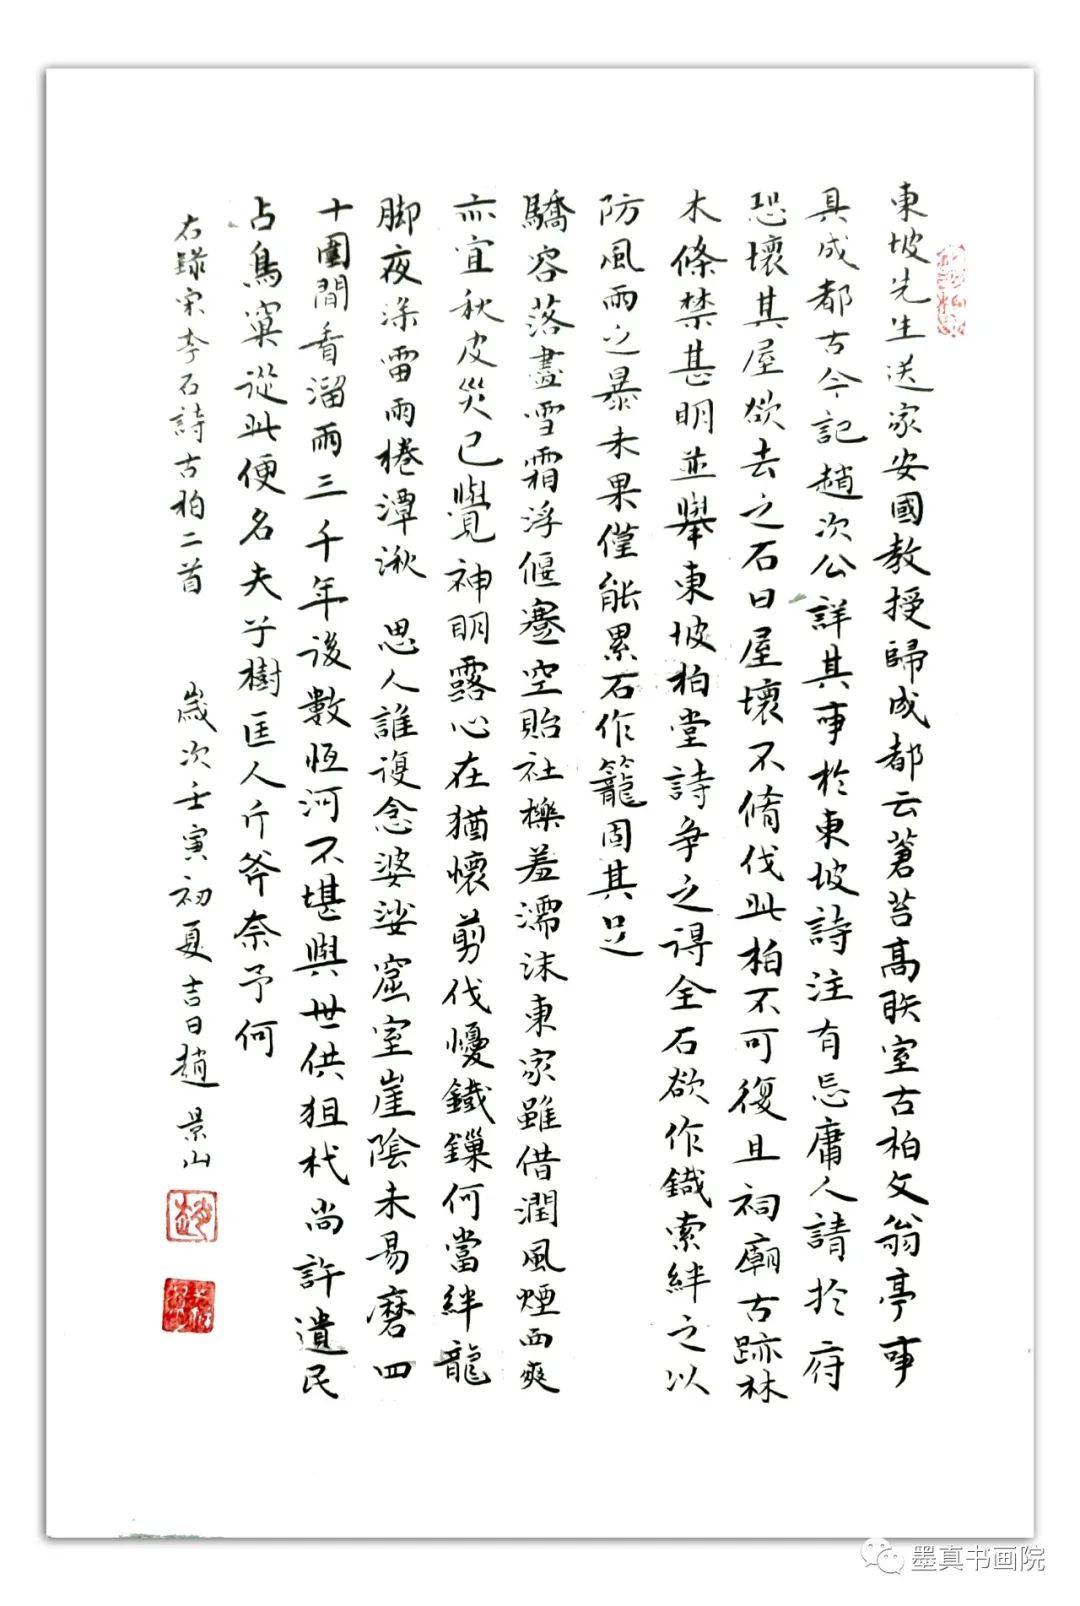 東坡先生送家安國教授歸成都云蒼苔高朕室古柏文翁亭事
具成都古今記趙次公詳其事於東坡詩注有忌庸人請於府
恐壞其屋欲去之石曰屋壞不脩伐此柏不可復且祠廟古跡林
木條禁甚明並舉東坡柏堂詩爭之得全石欲作鐵索絆之以
防風雨之暴未果僅能累石作籠固其足
驕容落盡雪霜浮偃蹇空貽社櫟羞濡沫東家雖借潤風煙西爽
亦宜秋皮災已覺神明露心在猶懷剪伐憂鐵鏁何當絆龍
脚夜深雷雨捲潭湫 思人誰復念婆娑窟室崖陰未易磨四
十圍間看溜雨三千年後數恆河不堪與世供狙杙尚許遺民
占鳥窠從此便名夫子樹匡人斤斧奈予何
右錄宋李石詩古柏二首 歲次壬寅初夏吉日趙景山
墨真书画院